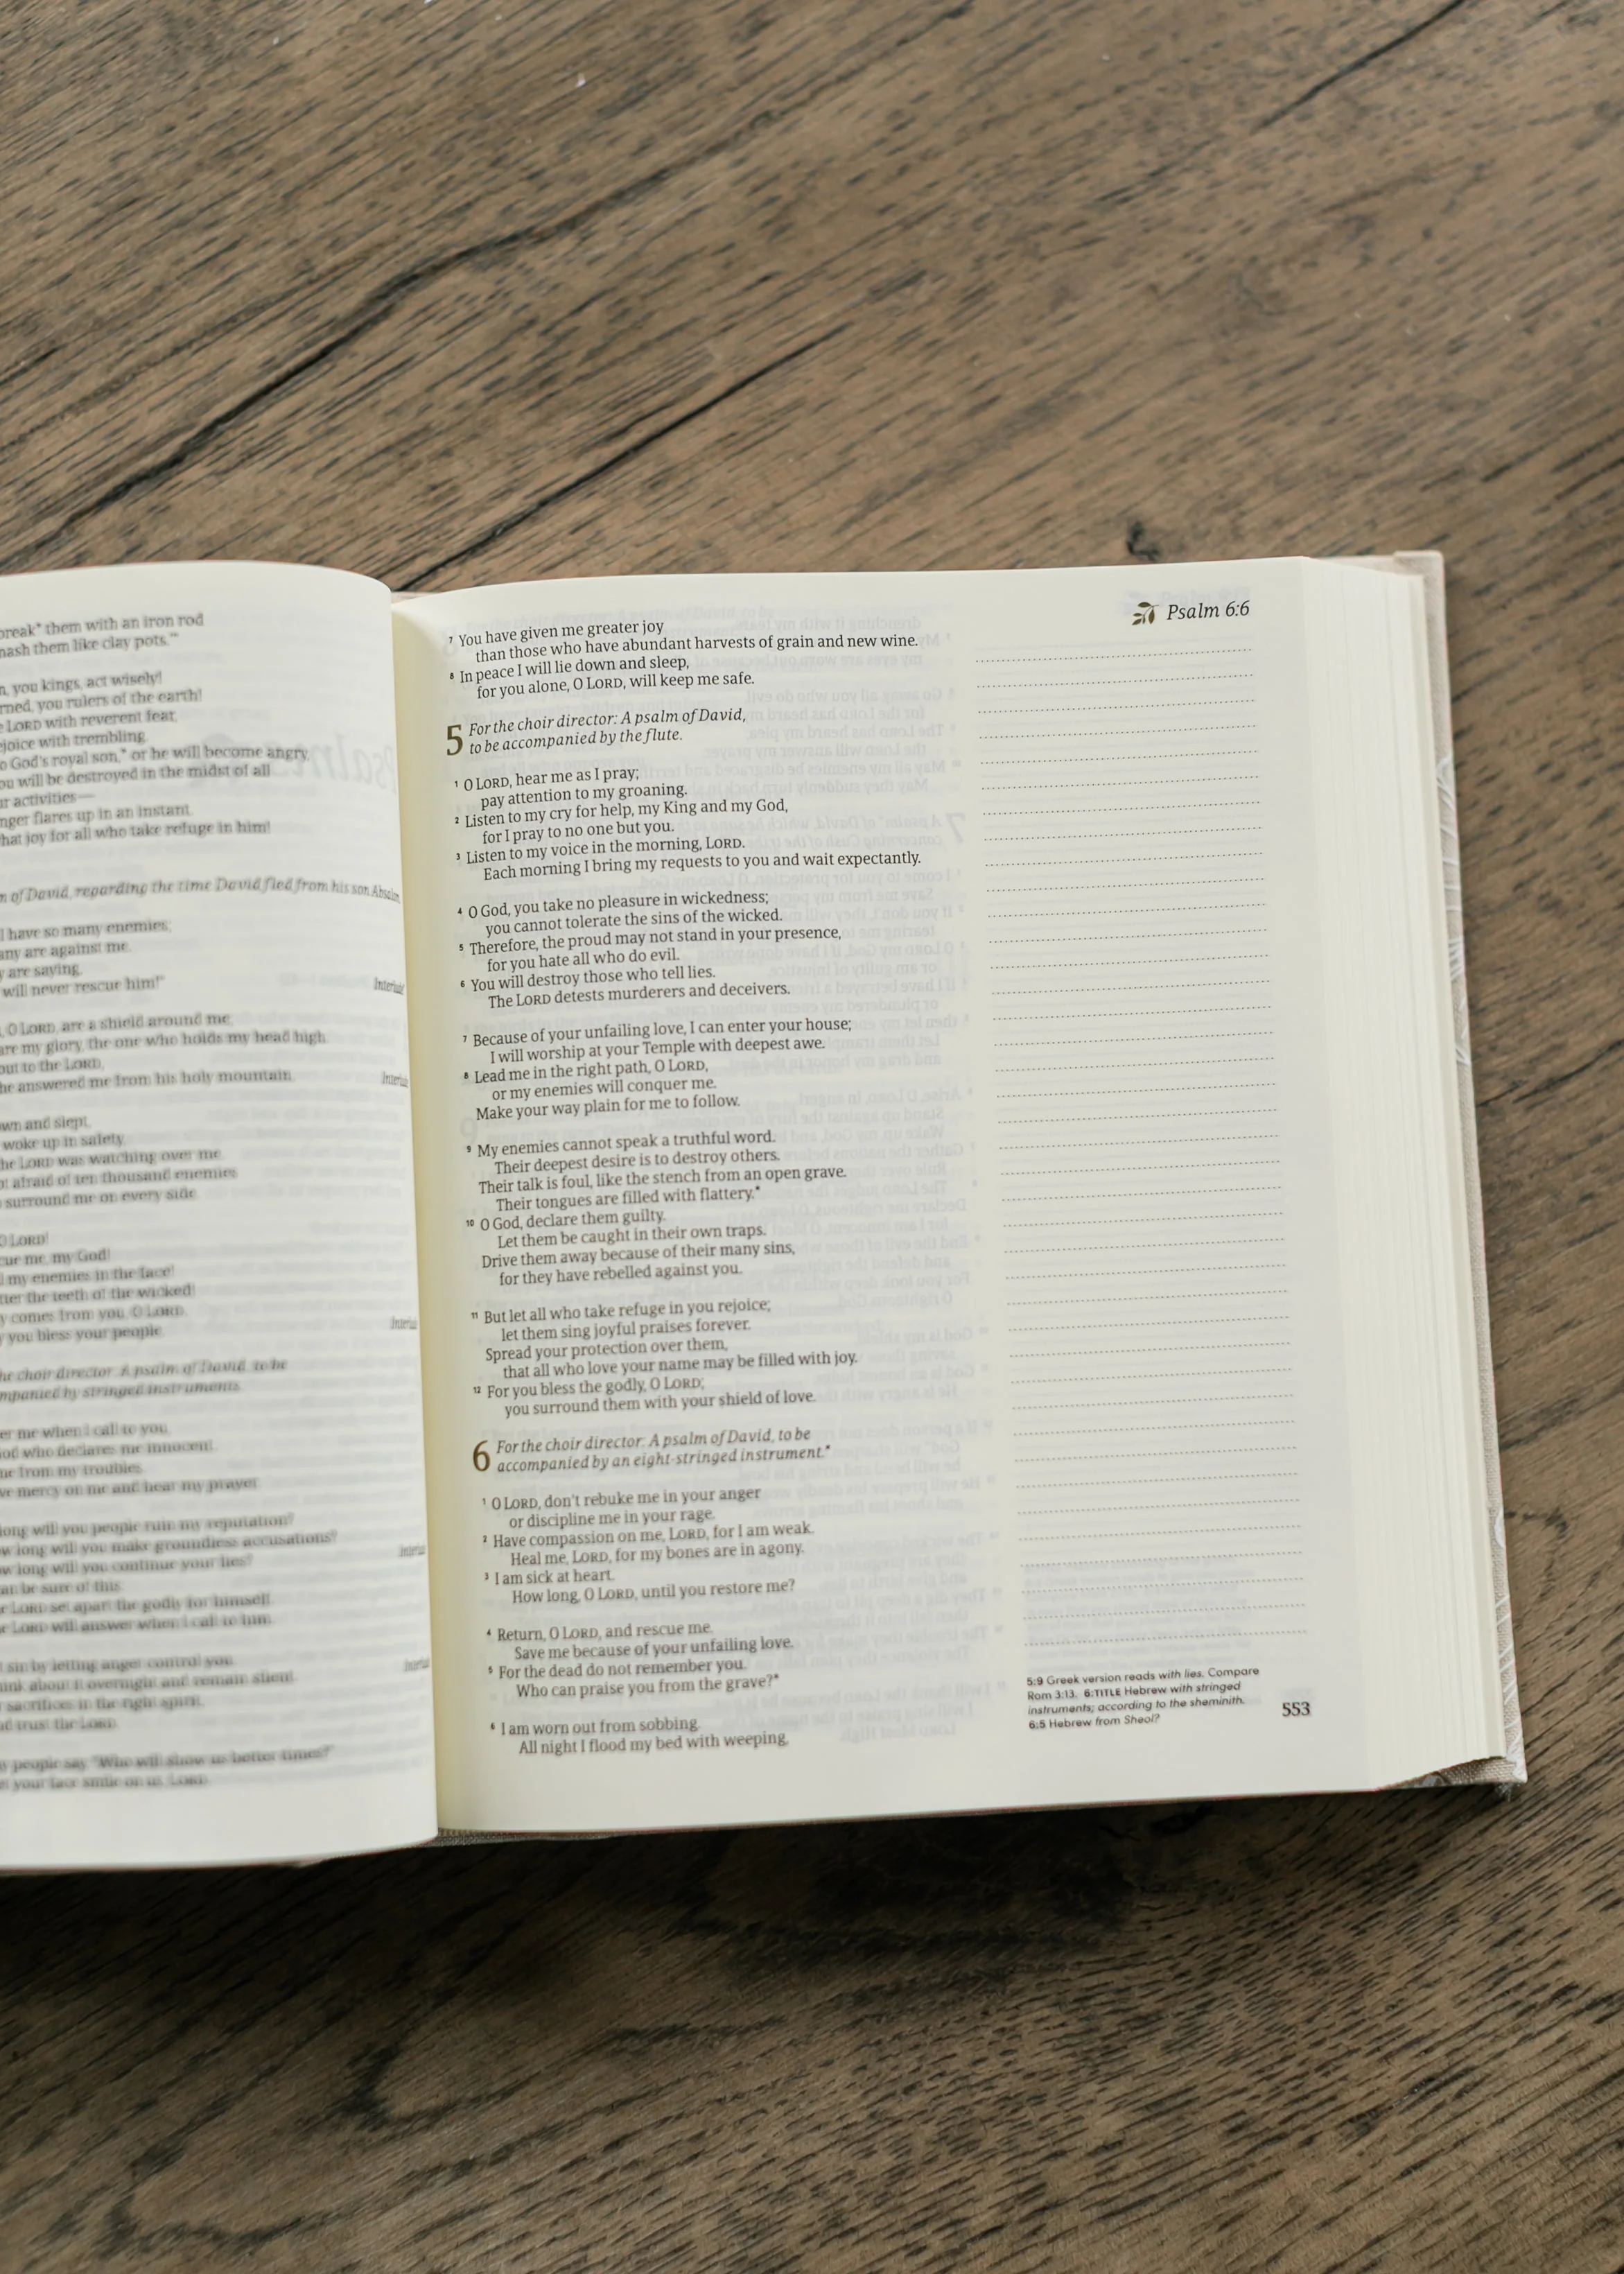 break* them with an iron rod
them like clay pots.'"
you kings, act wisely!
you rulers of the earth!
LORD with reverent fear,
with trembling.
God's royal son,* or he will become angry,
will be destroyed in the midst of all
activities—
flares up in an instant.
joy for all who take refuge in him!
of David, regarding the time David fled from his son Absalom.
I have so many enemies;
are against me.
are saying,
will never rescue him!"
Interlude
O LORD, are a shield around me;
my glory, the one who holds my head high.
out to the LORD,
he answered me from his holy mountain.
Interlude
and slept,
woke up in safety,
the LORD was watching over me.
afraid of ten thousand enemies
surround me on every side.
O LORD!
me, my God!
my enemies in the face!
the teeth of the wicked!
comes from you, O LORD.
you bless your people.
Interlude
choir director: A psalm of David, to be
by stringed instruments.
me when I call to you,
who declares me innocent.
me from my troubles.
mercy on me and hear my prayer.
long will you people ruin my reputation?
long will you make groundless accusations?
long will you continue your lies?
Interlude
be sure of this:
LORD set apart the godly for himself.
LORD will answer when I call to him.
sin by letting anger control you.
about it overnight and remain silent.
Interlude
sacrifices in the right spirit,
trust the LORD.
people say, "Who will show us better times?"
your face smile on us, LORD.
Psalm 6:6
7 You have given me greater joy
than those who have abundant harvests of grain and new wine.
8 In peace I will lie down and sleep,
for you alone, O LORD, will keep me safe.
5 For the choir director: A psalm of David,
to be accompanied by the flute.
1 O LORD, hear me as I pray;
pay attention to my groaning.
2 Listen to my cry for help, my King and my God,
for I pray to no one but you.
3 Listen to my voice in the morning, LORD.
Each morning I bring my requests to you and wait expectantly.
4 O God, you take no pleasure in wickedness;
you cannot tolerate the sins of the wicked.
5 Therefore, the proud may not stand in your presence,
for you hate all who do evil.
6 You will destroy those who tell lies.
The LORD detests murderers and deceivers.
7 Because of your unfailing love, I can enter your house;
I will worship at your Temple with deepest awe.
8 Lead me in the right path, O LORD,
or my enemies will conquer me.
Make your way plain for me to follow.
9 My enemies cannot speak a truthful word.
Their deepest desire is to destroy others.
Their talk is foul, like the stench from an open grave.
Their tongues are filled with flattery.*
10 O God, declare them guilty.
Let them be caught in their own traps.
Drive them away because of their many sins,
for they have rebelled against you.
11 But let all who take refuge in you rejoice;
let them sing joyful praises forever.
Spread your protection over them,
that all who love your name may be filled with joy.
12 For you bless the godly, O LORD;
you surround them with your shield of love.
6 For the choir director: A psalm of David, to be
accompanied by an eight-stringed instrument.*
1 O LORD, don't rebuke me in your anger
or discipline me in your rage.
2 Have compassion on me, LORD, for I am weak.
Heal me, LORD, for my bones are in agony.
3 I am sick at heart.
How long, O LORD, until you restore me?
4 Return, O LORD, and rescue me.
Save me because of your unfailing love.
5 For the dead do not remember you.
Who can praise you from the grave?*
6 I am worn out from sobbing.
All night I flood my bed with weeping,
5:9 Greek version reads with lies. Compare
Rom 3:13. 6:TITLE Hebrew with stringed
instruments; according to the sheminith.
6:5 Hebrew from Sheol?
553